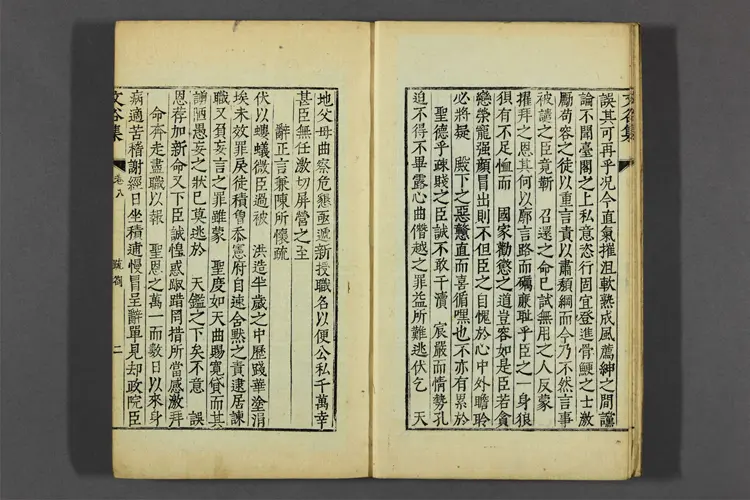 誤其可再乎況今直氣摧沮軟熟成風薦紳之閒讜
論不聞臺閣之上私意恣行固宜登進骨鯁之士激
勵苟容之徒以重言責以肅頹綱而今乃不然言事
被譴之臣竟蘄　召還之命已試無用之人反蒙
擢拜之恩其何以廓言路而礪廉耻乎臣之一身狼
狽有不足恤而　國家勸懲之道豈容如是臣若貪
戀榮寵强顔冒出則不但臣之自愧於心中外瞻聆
必將擬　殿下之惡戇直而喜循嘿也不亦有累於
聖德乎疎賤之臣誠不敢干瀆　宸嚴而情勢孔
迫不得不畢露心曲僭越之罪益所難逃伏乞　天
地父母曲察危懇亟遞新授職名以便公私千萬幸
甚臣無任激切屏營之至
辭正言兼陳所懷疏
伏以螻蟻微臣過被　洪造半歲之中歷踐華塗涓
埃未效罪戾徒積曾忝憲府自速含默之責逮居諫
職又犯妄言之罪雖蒙　聖度如天曲賜寬貸而其
謭陋愚妄之狀已莫逃於　天鑑之下矣不意　誤
恩荐加新命又下臣誠惶惑踧踖罔措所當感激拜
命奔走盡職以報　聖恩之萬一而數日以來身
病適苦稽謝經日坐積逋慢冒呈辭單見却政院臣
文谷集
卷八
疏箚
二
文谷集